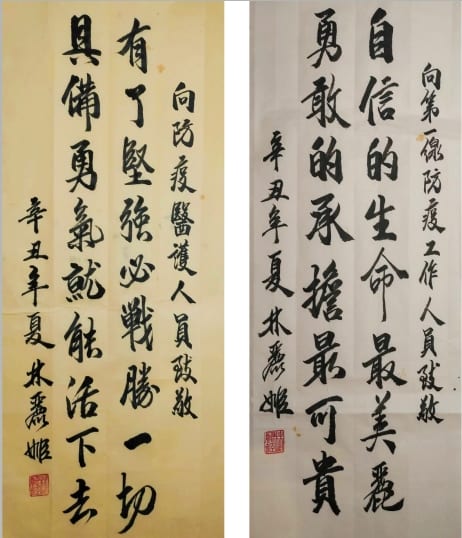 向防疫醫護人員致敬
有了堅強必戰勝一切
具備勇氣就能活下去
辛丑年夏 林麗姬
向第一線防疫工作人員致敬
自信的生命最美麗
勇敢的承擔最可貴
辛丑年夏 林麗姬